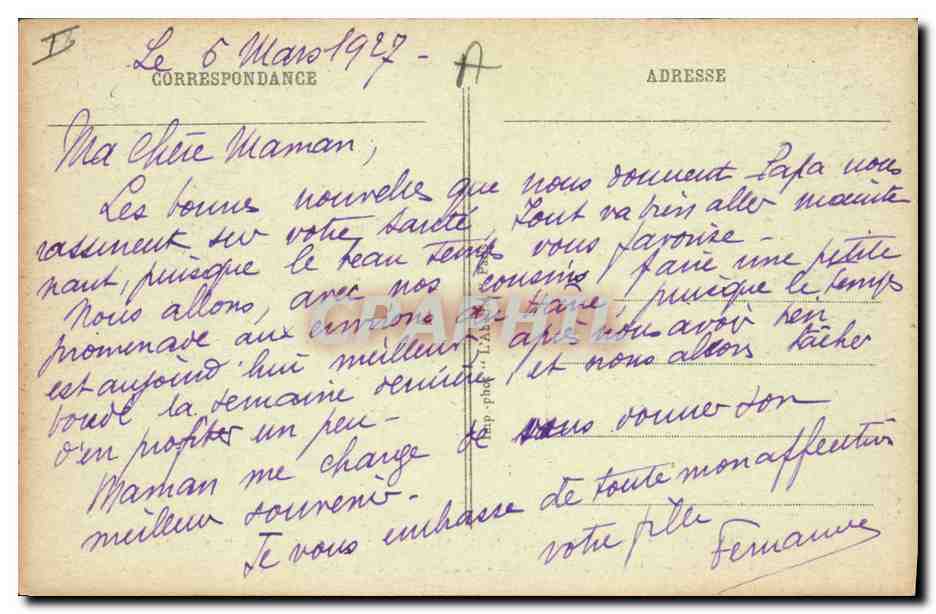 Le 6 Mars 1927 -
CORRESPONDANCE
A
ADRESSE
Ma Chère Maman,
Les bonnes nouvelles que nous donnent Papa nous
rassurent sur votre santé, Tout va bien aller mainte
nant, puisque le beau temps vous favorise -
Nous allons, avec nos cousins faire une petite
promenade aux environs du puisque le temps
est aujourd'hui meilleur après nous avoir bien
boudé la semaine dernière et nous allons tâcher
d'en profiter un peu -
Maman me charge de vous donner son
meilleur souvenir -
Je vous embrasse de toute mon affection
votre fille
Fernande
Imp.-phot. "L'Ab
CPAPHIL